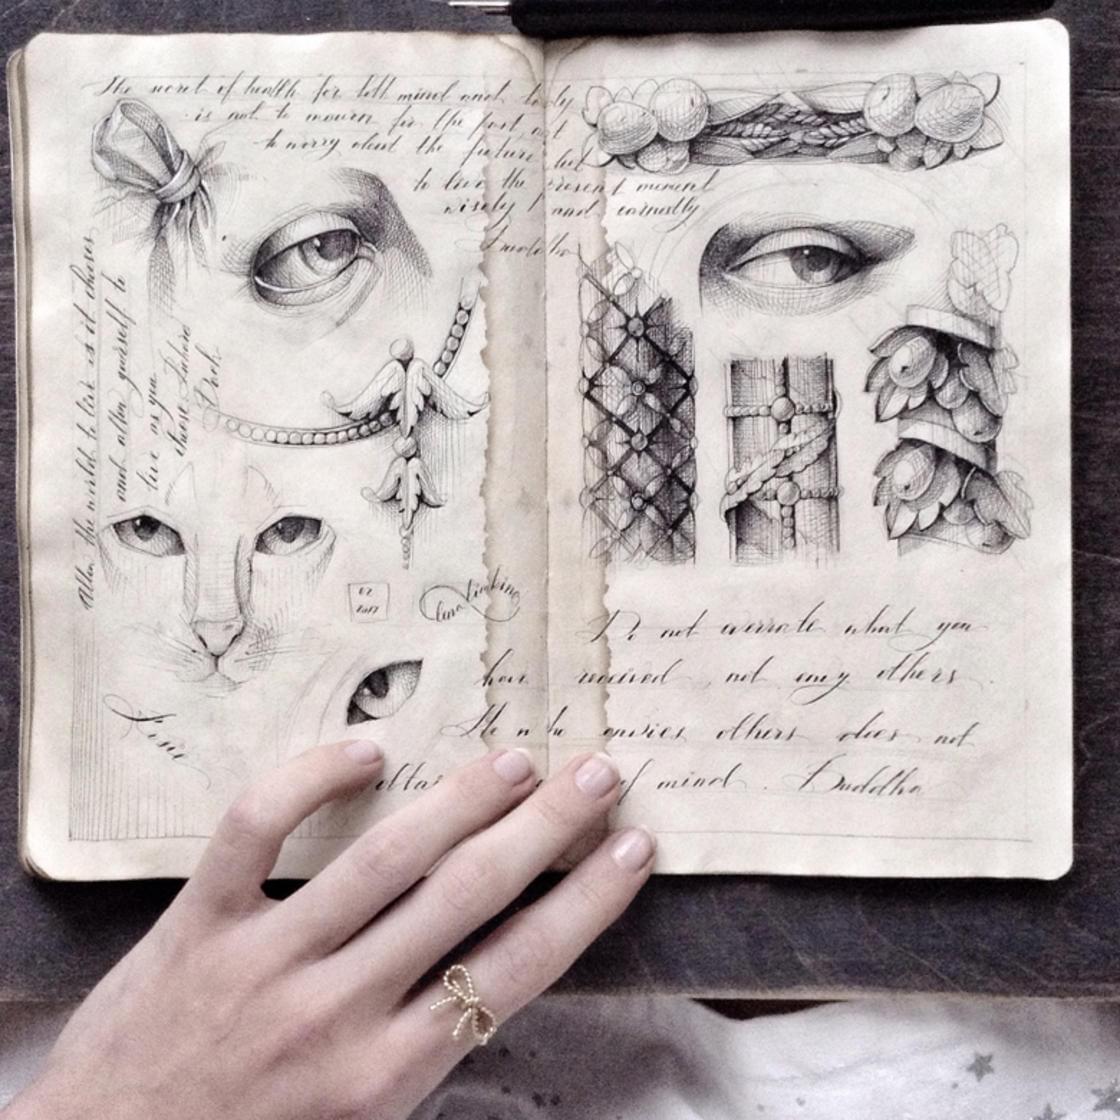 The secret of health for both mind and body
is not to mourn for the past, not
to worry about the future, but
to live the present moment
wisely and earnestly
Buddha
Allow the world to live as it chooses
and allow yourself to
live as you
choose
Bach
02
2017
lena limkina
Do not overrate what you
have received, not envy others
He who envies others does not
of mind. Buddha